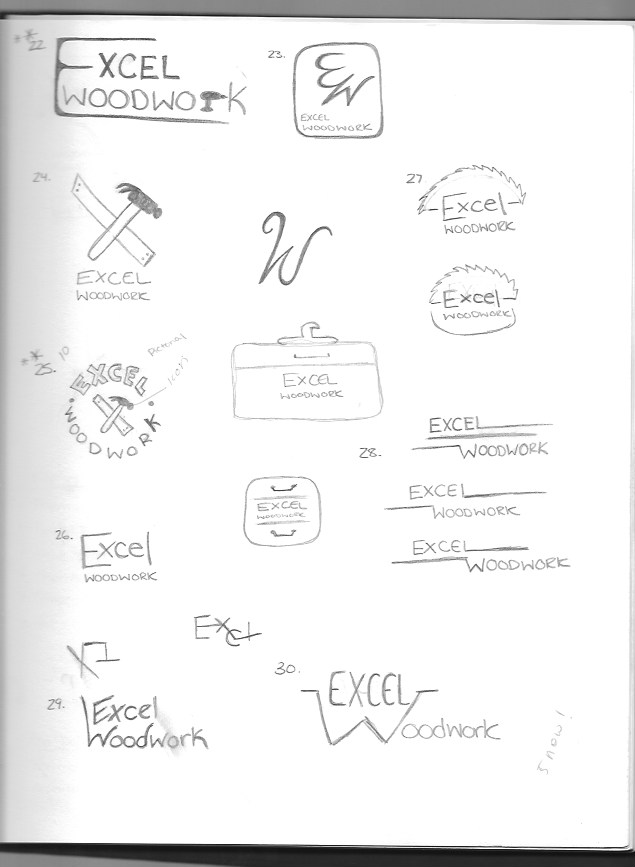 **
22
EXCEL
WOODWORK
23.
EW
EXCEL
WOODWORK
24.
EXCEL
WOODWORK
W
27
Excel
WOODWORK
Excel
WOODWORK
**
25.
10
EXCEL
WOODWORK
Pictorial
icons
EXCEL
WOODWORK
EXCEL
WOODWORK
28.
EXCEL
WOODWORK
EXCEL
WOODWORK
EXCEL
WOODWORK
26.
Excel
WOODWORK
Excel
29.
Excel
Woodwork
30.
EXCEL
Woodwork